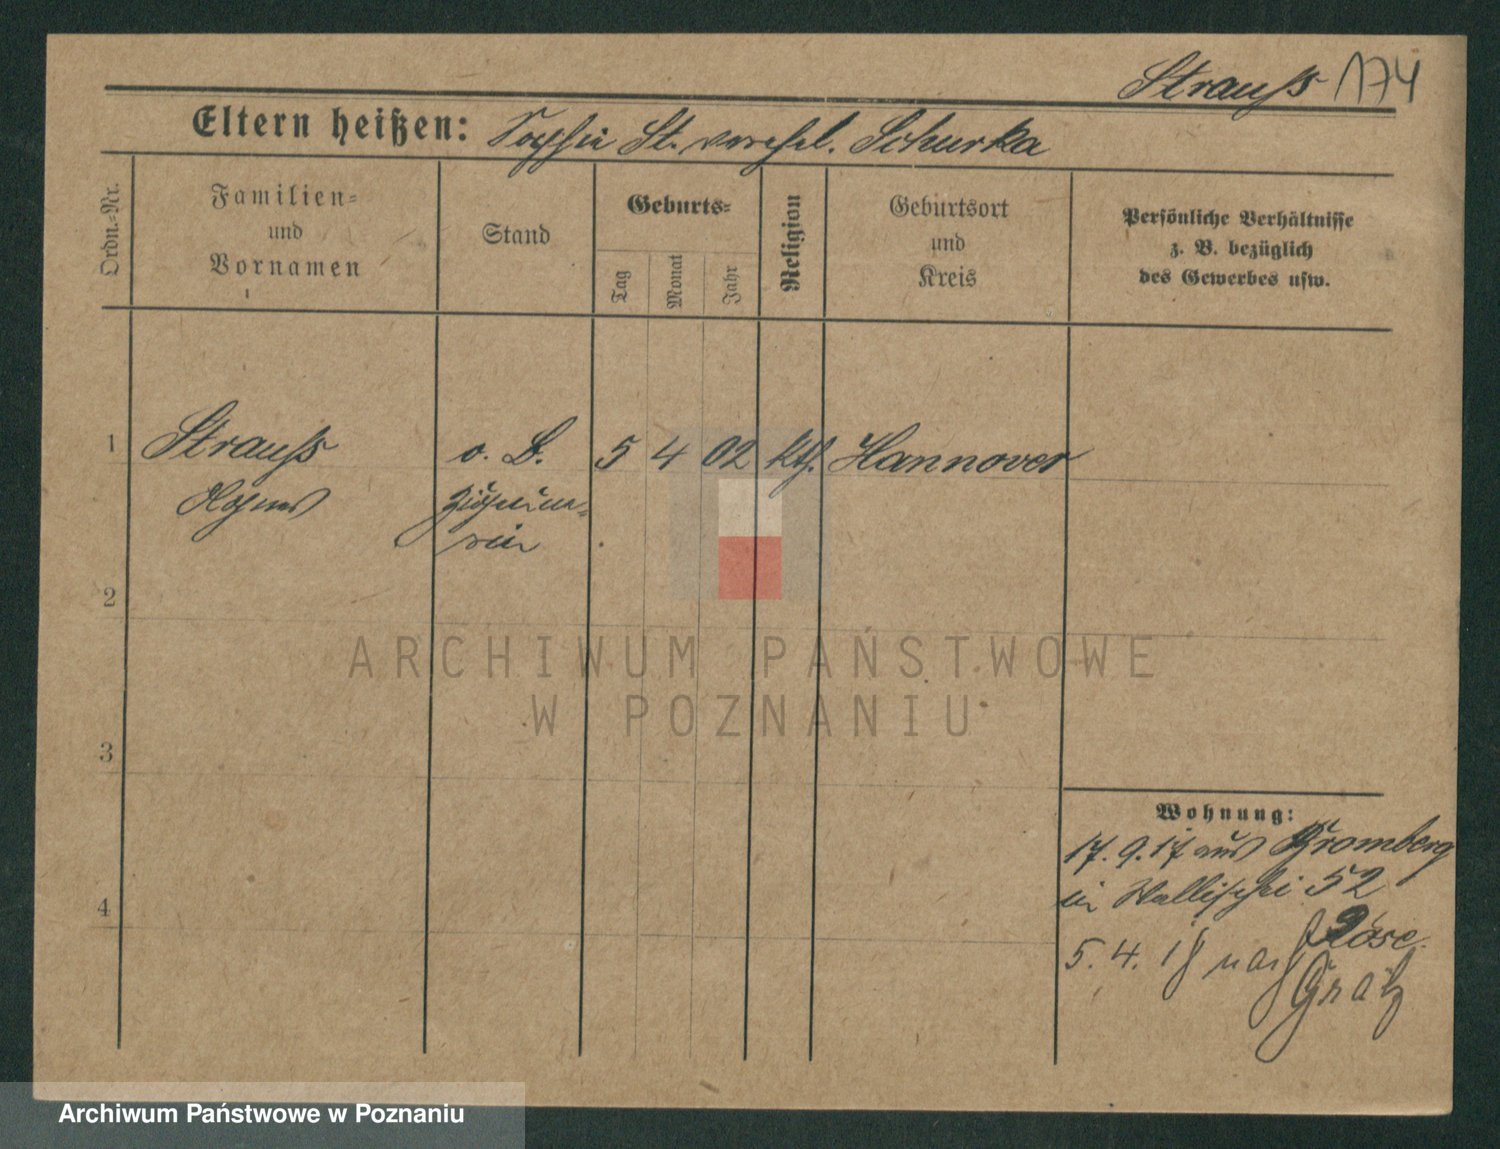 Strauß 174
Eltern heißen: Sophie St. verehel. Schurka
Ordn.=Nr.
Familien=
und
Vornamen
Stand
Geburts=
Tag
Monat
Jahr
Religion
Geburtsort
und
Kreis
Persönliche Verhältnisse
z. B. bezüglich
des Gewerbes usw.
1 Strauß o. B. 5 4 02 kth. Hannover
Agnes
2
3
4
Wohnung:
17. 9. 17 aus Bromberg
in Wallischei 52 Röse.
5. 4. 18 nach Grätz
ARCHIWUM PAŃSTWOWE
W POZNANIU
Archiwum Państwowe w Poznaniu